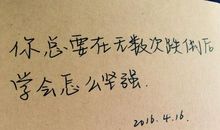 你总要在无数次跌倒后
学会怎么坚强.
2016.4.16.